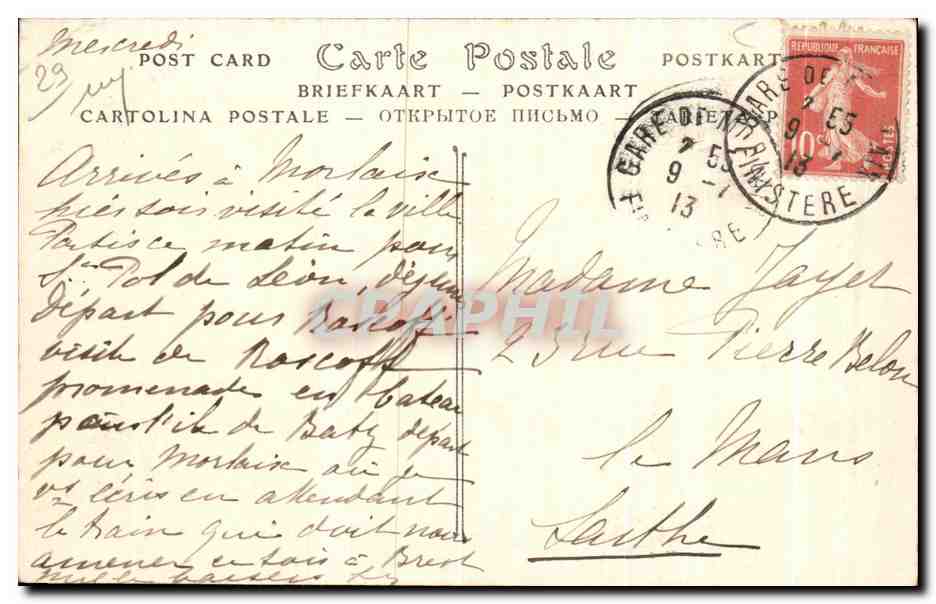 Mercredi
29
POST CARD Carte Postale POSTKARTE
BRIEFKAART - POSTKAART
CARTOLINA POSTALE - ОТКРЫТОЕ ПИСЬМО -
REPUBLIQUE FRANÇAISE
10
POSTES
GARE DE
7 55
9 - 7
13
FINISTERE
GARE DE M
7 55
9 - 7
13
Arrivés à Morlaix
hier soir visité la ville
Partis ce matin pour
St Pol de Léon, déjeuné
Départ pour Roscoff
visite de Roscoff
promenade en bateau
pour l'île de Batz départ
pour Morlaix où je
vs écris en attendant
le train qui doit nous
amener ce soir à Brest
mille baisers
Madame Jayet
23 rue Pierre Belon
le Mans
Sarthe
CPAPHIL